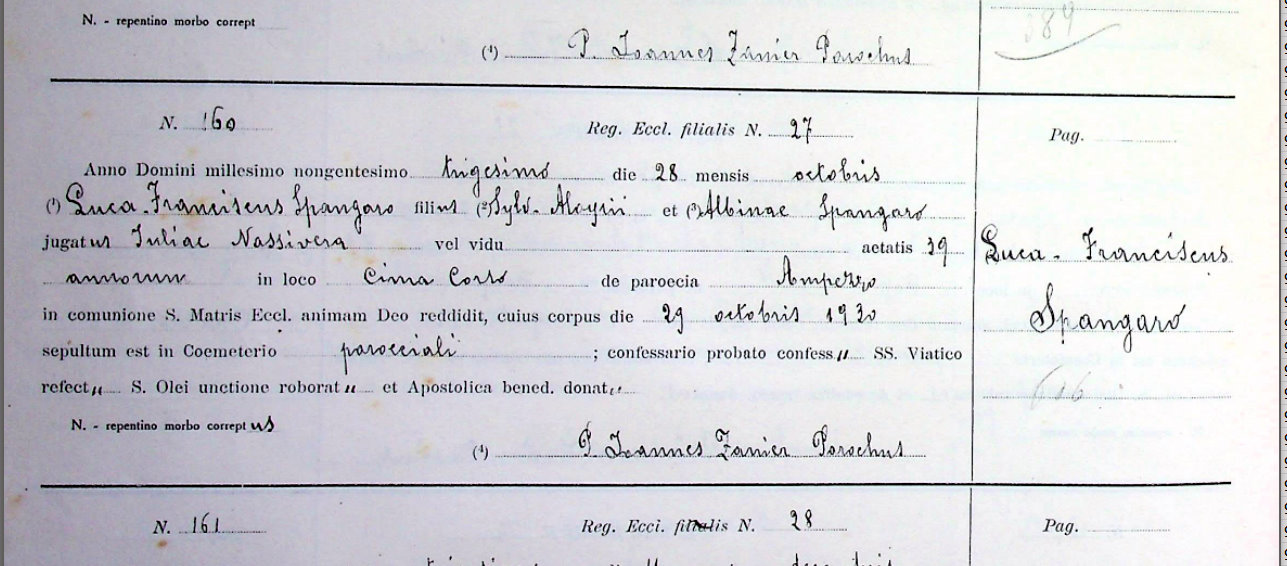 N. - repentino morbo corrept
389
(4) P. Ioannes Zanier Parochus
N. 160 Reg. Eccl. filialis N. 27 Pag.
Anno Domini millesimo nongentesimo trigesimo die 28 mensis octobris
(1) Luca-Franciscus Spangaro filius (2) Sylv. Aloysii et (3) Albinae Spangaro
jugatus Iuliae Nassivera vel vidu aetatis 39
annorum in loco Cima Corso de paroecia Ampezzo
Luca-Franciscus
in comunione S. Matris Eccl. animam Deo reddidit, cuius corpus die 29 octobris 1930
Spangaro
sepultum est in Coemeterio paroeciali ; confessario probato confess„ SS. Viatico
refect„ S. Olei unctione roborat„ et Apostolica bened. donat„
N. - repentino morbo correptus
(4) P. Ioannes Zanier Parochus
N. 161 Reg. Eccl. filialis N. 28 Pag.